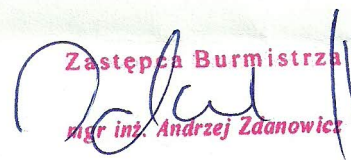 Zastępca Burmistrza
mgr inż. Andrzej Zdanowicz